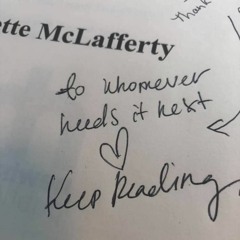 Thank
ette McLafferty
to whomever
needs it next
♡
Keep Reading